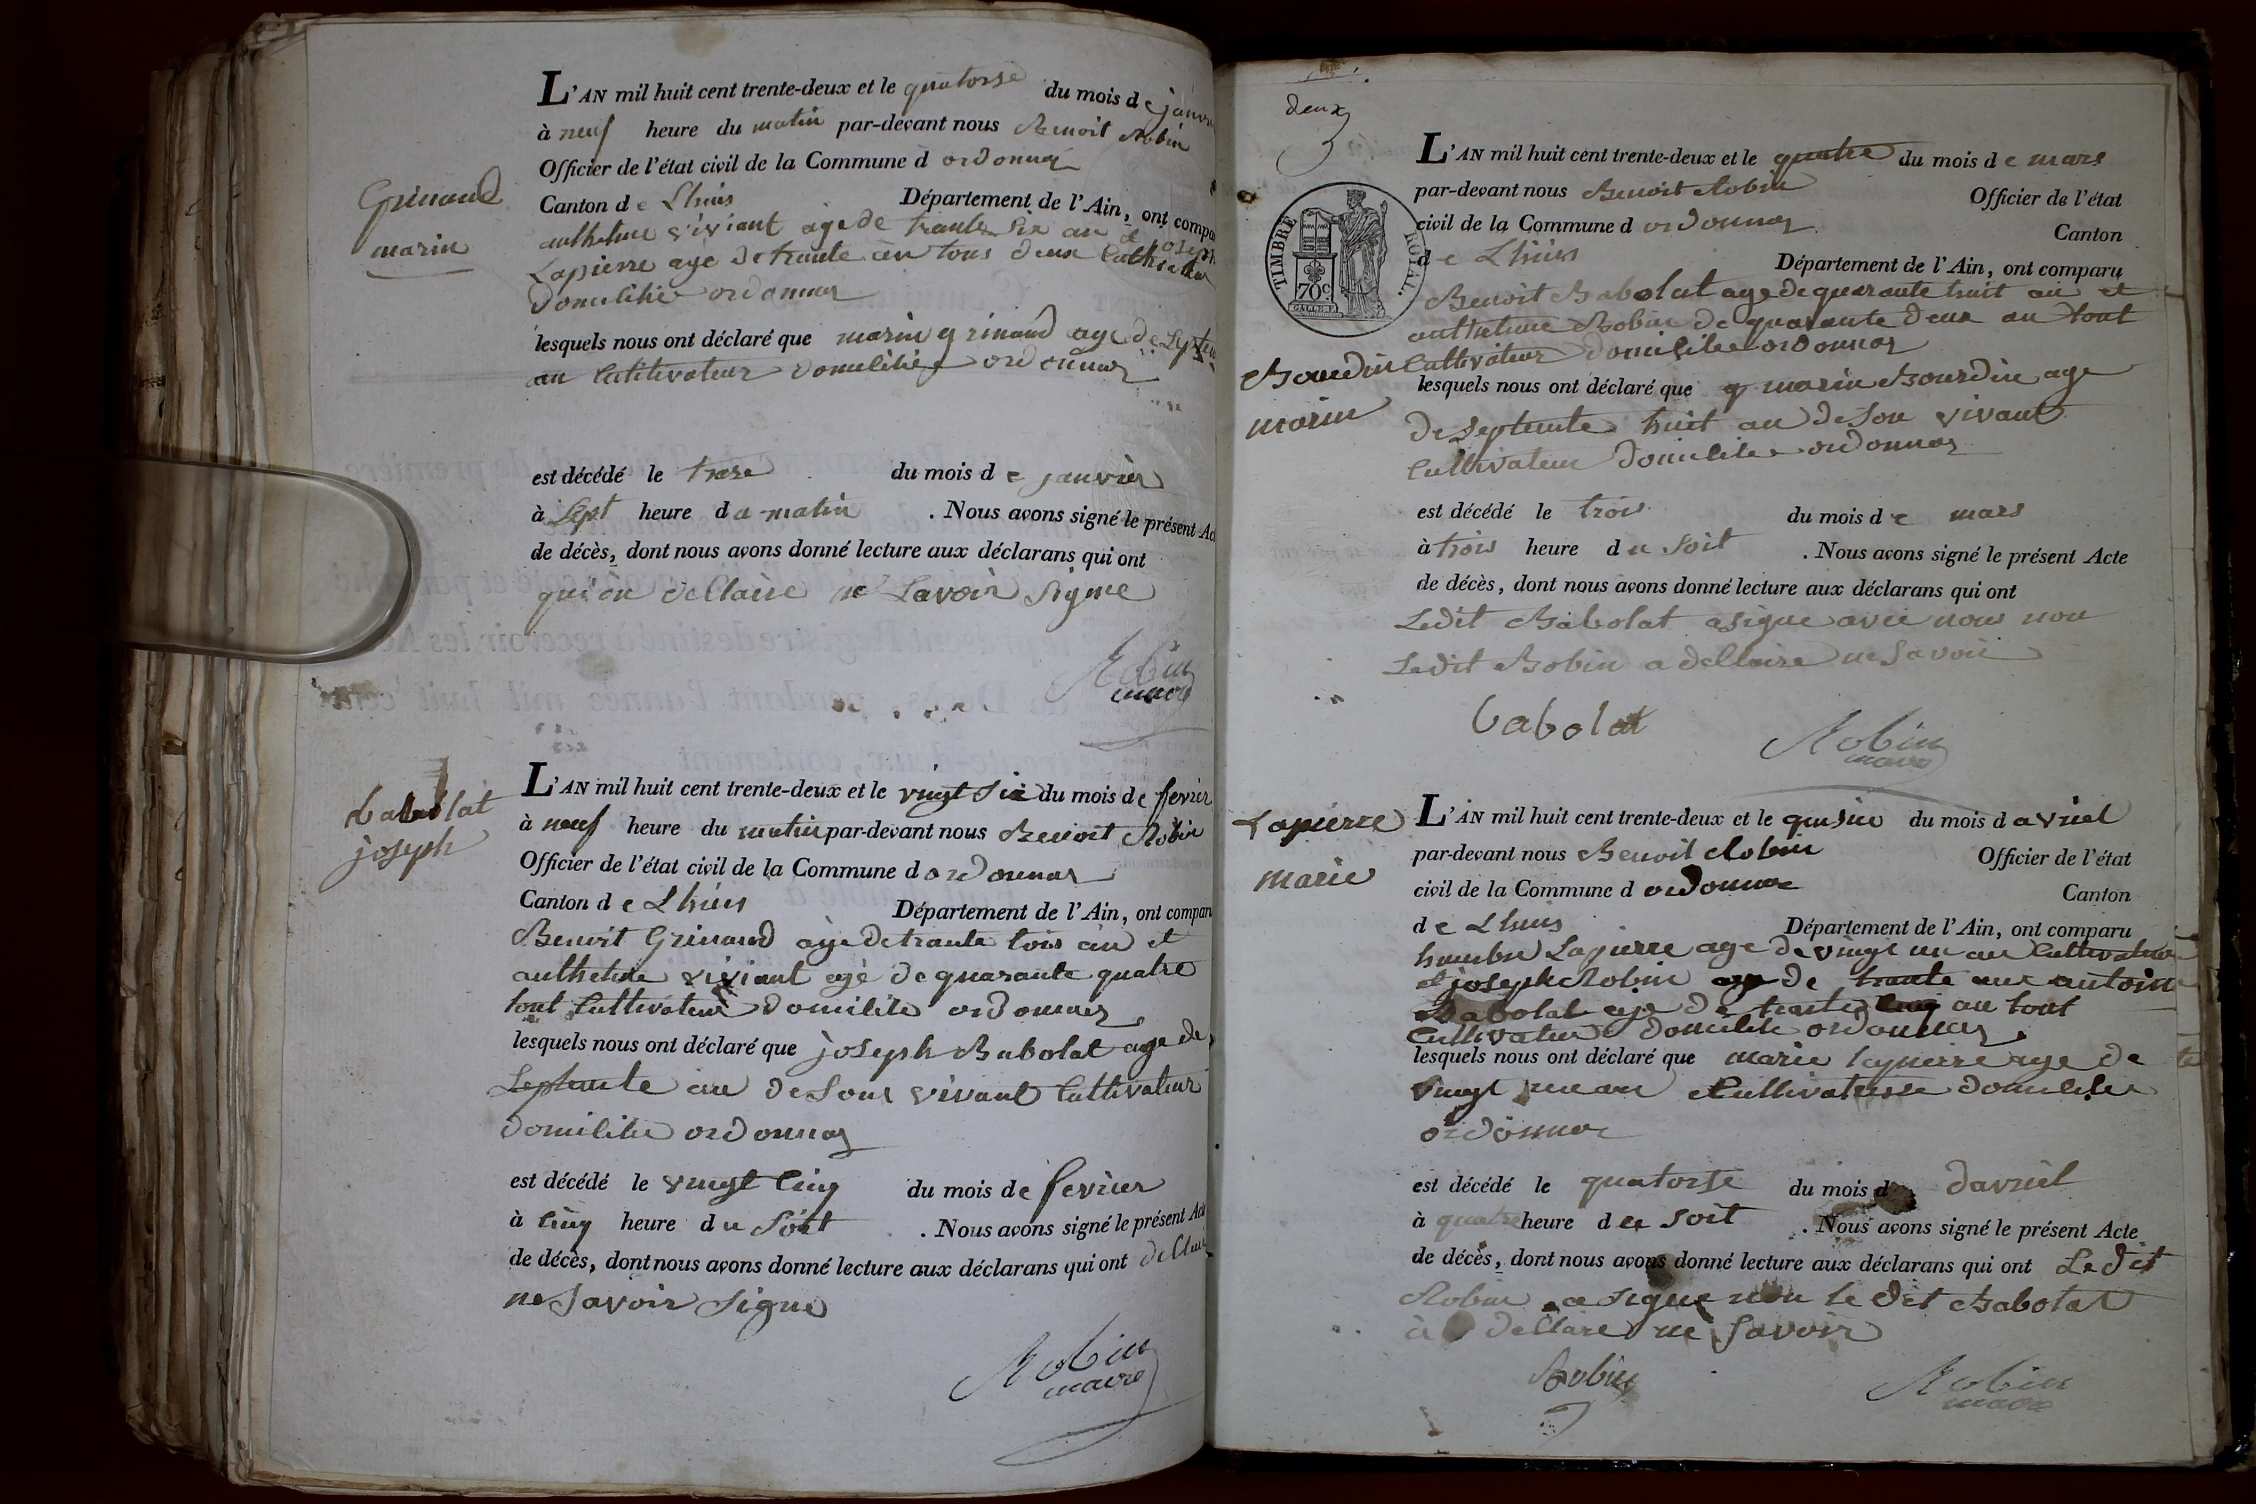 L'AN mil huit cent trente-deux et le quatorse du mois de janv
à neuf heure du matin par-devant nous Benoit Robin
Officier de l'état civil de la Commune d ordonnas
Grinand
marin
Canton de Lhuis Département de l'Ain, ont compa
anthelme viviant age de trante six an et joseph
Lapierre age de trante an tous deux Cultivateur
domicilié ordonnas
lesquels nous ont déclaré que marin grinand age de Septente
an Cultivateur domicilié ordonnas
est décédé le traze du mois de janvier
à Sept heure du matin . Nous avons signé le présent Ac
de décès, dont nous avons donné lecture aux déclarans qui ont
qui on dellaire ne Savoir Signe
Robin
maire
babolat
joseph
L'AN mil huit cent trente-deux et le vingt Six du mois de fevrier
à neuf heure du matin par-devant nous Benoit Robin
Officier de l'état civil de la Commune d ordonnas
Canton de Lhuis Département de l'Ain, ont comparu
Benoit Grinand age de trante tois an et
anthelme viviant agé de quarante quatre
tout Cultivateur domicilié ordonnas
lesquels nous ont déclaré que joseph Babolat age de
Septante an de Sont vivant Cultivateur
domicilié ordonnas
est décédé le vingt Cinq du mois de fevrier
à Cinq heure du Soit . Nous avons signé le présent Acte
de décès, dont nous avons donné lecture aux déclarans qui ont
ne Savoir Signe
Robin
maire
deux
TIMBRE ROYAL.
70c
L'AN mil huit cent trente-deux et le quatre du mois de mars
par-devant nous Benoit Robin Officier de l'état
civil de la Commune d ordonnas Canton
de Lhuis Département de l'Ain, ont comparu
Benoit Babolat age de quarante huit an et
anthelme Bobin de quarante deux an tout
Cultivateur domicilié ordonnas
Bourdin
marin
lesquels nous ont déclaré que marin Bourdin age
de Septente huit an de Son vivant
Cultivateur domicilié ordonnas
est décédé le trois du mois de mars
à trois heure du Soit . Nous avons signé le présent Acte
de décès, dont nous avons donné lecture aux déclarans qui ont
Ledit Babolat a signe avec nous non
Ledit Bobin a dellaire ne Savoir
babolat
Robin
maire
Lapierre
marie
L'AN mil huit cent trente-deux et le quinsie du mois d avriel
par-devant nous Benoit Robin Officier de l'état
civil de la Commune d ordonnas Canton
de Lhuis Département de l'Ain, ont comparu
Lapierre age de vingt un an Cultivateur
et joseph Robin age de trante antoine
Babolat age de trante Cinq an tout
Cultivateur domicilié ordonnas
lesquels nous ont déclaré que marie lapierre age de
vingt un an Cultivatrisse domicilié
ordonnas
est décédé le quatorse du mois d davriel
à quatre heure du Soit . Nous avons signé le présent Acte
de décès, dont nous avons donné lecture aux déclarans qui ont Le dit
Robin a Signe non le dit Babolat
à dellare ne Savoir
Robin
Robin
maire